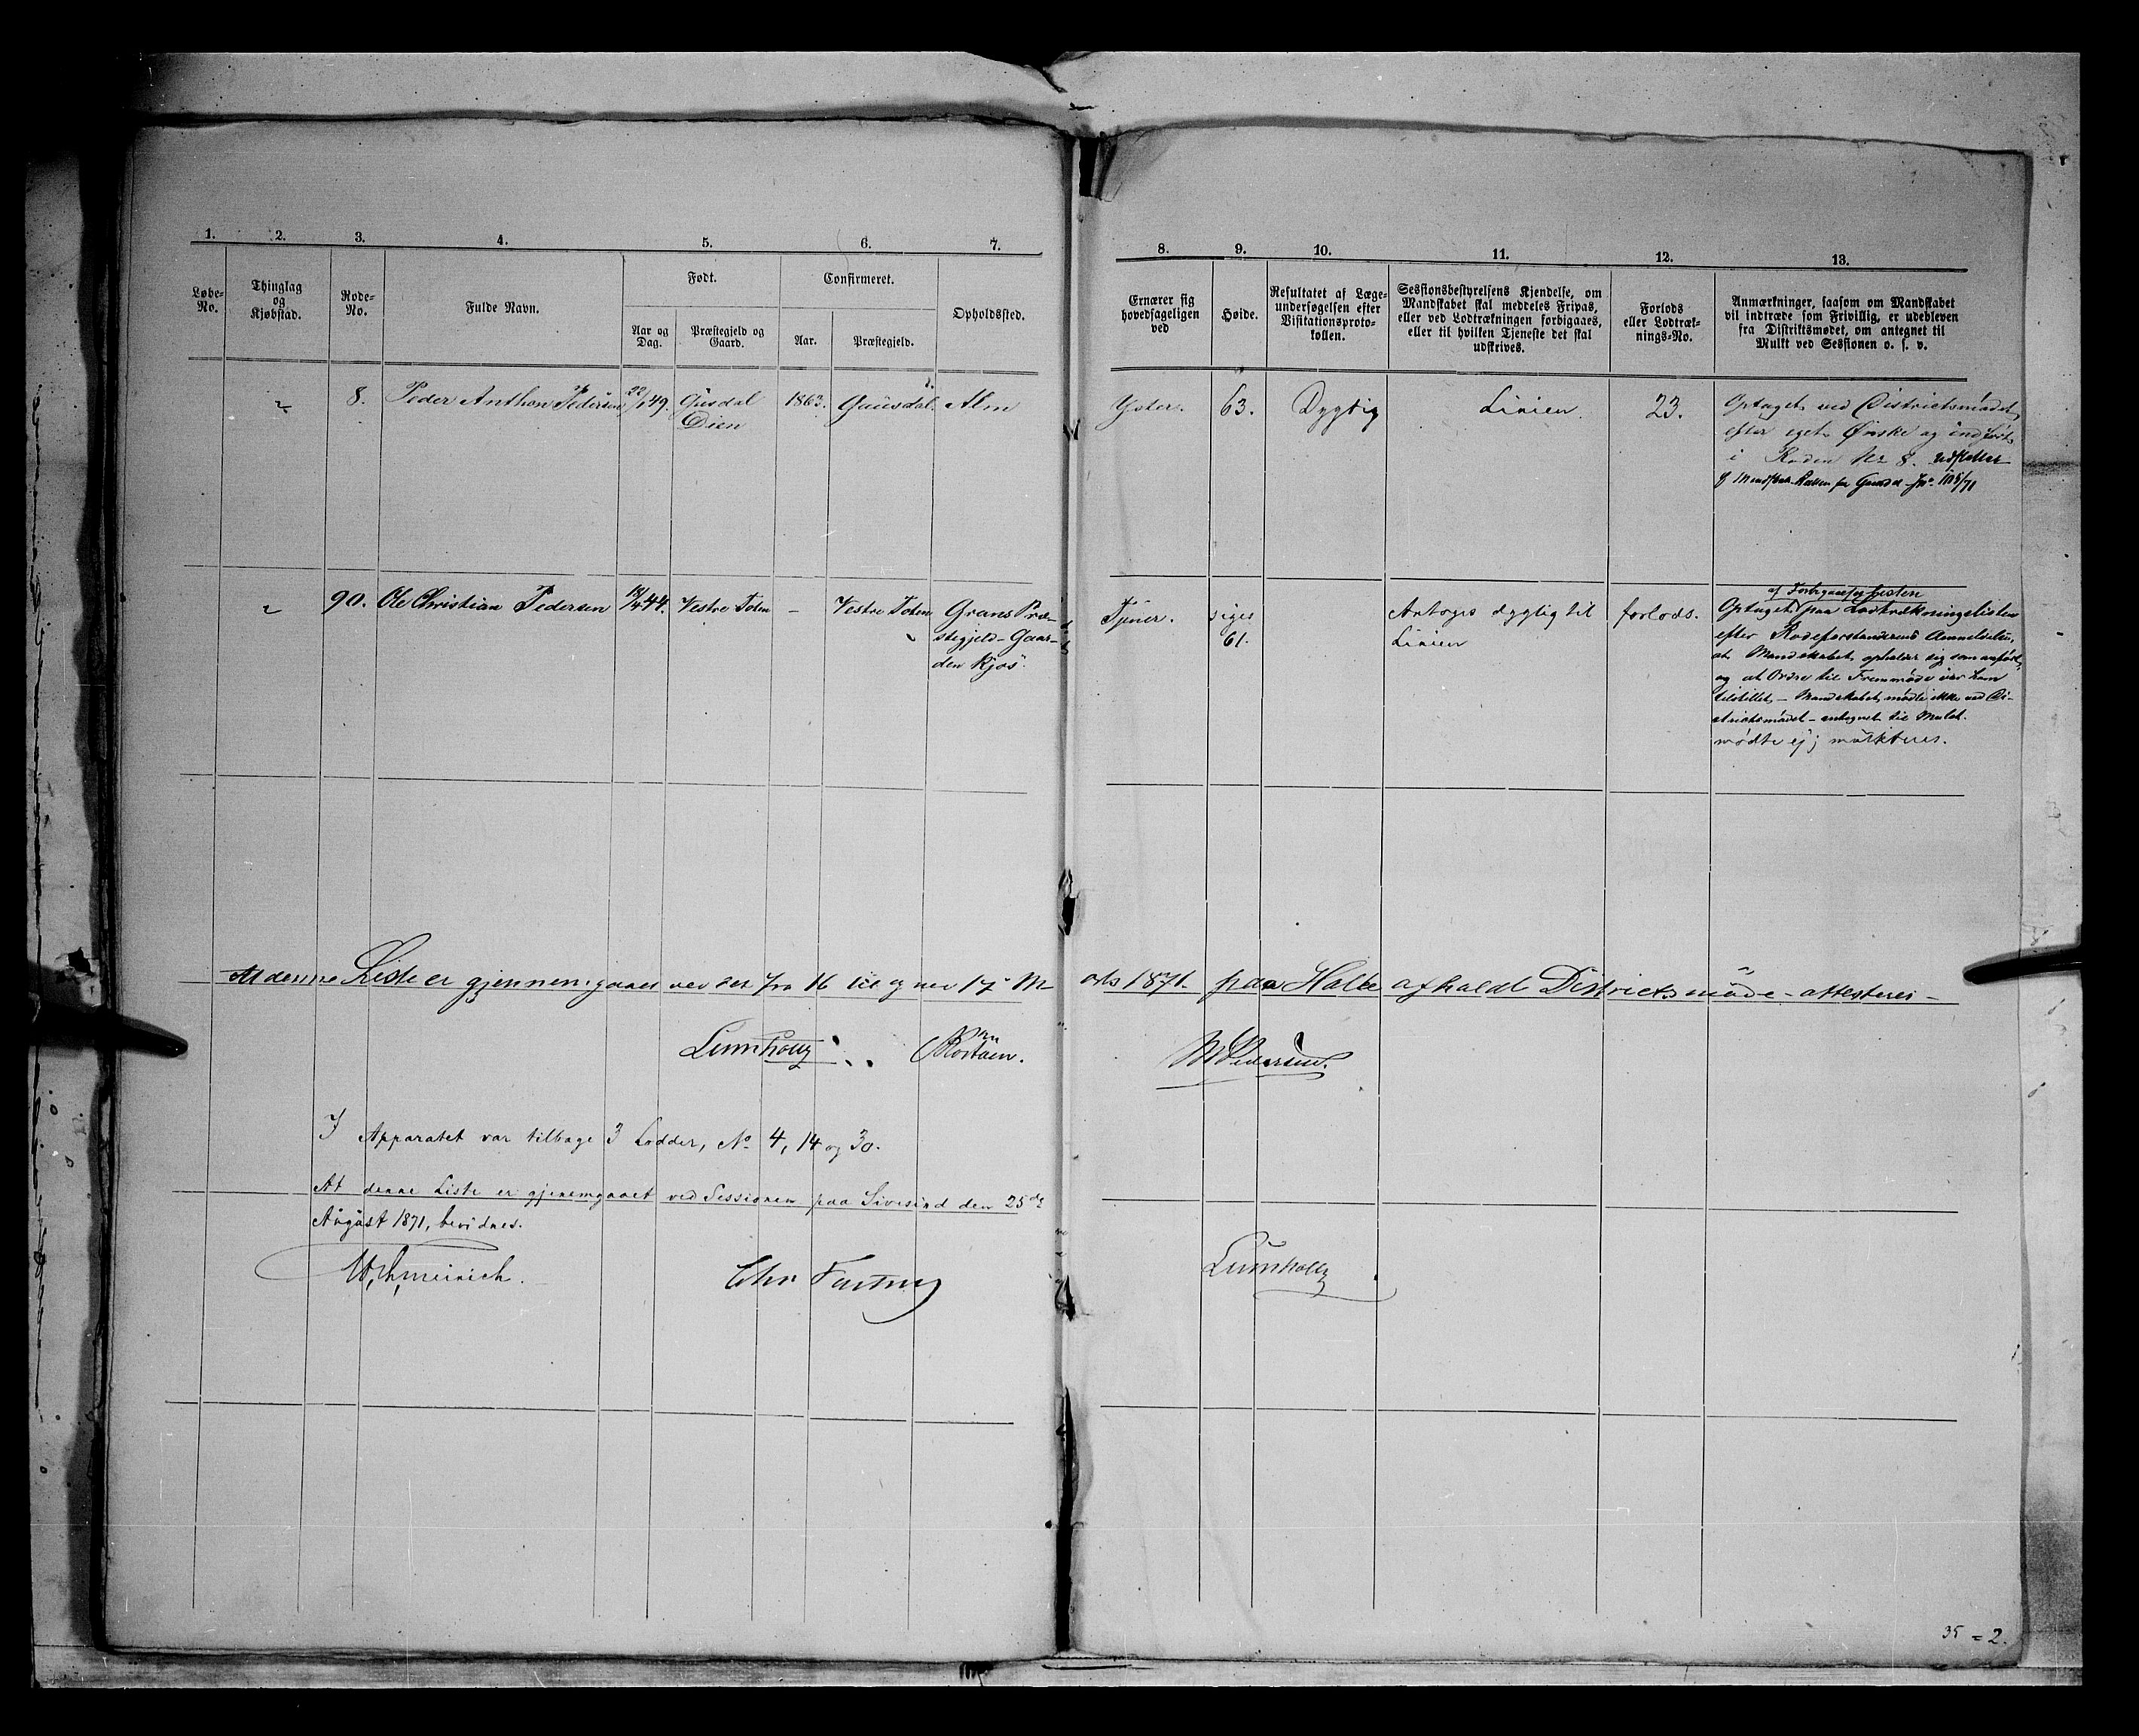 1. 2. 3. 4. 5. 6. 7.
Løbe-No.
Thinglag og Kjøbstad.
Rode-No.
Fulde Navn.
Født.
Aar og Dag.
Præstegjeld og Gaard.
Confirmeret.
Aar.
Præstegjeld.
Opholdssted.
8. Peder Anthon Pedersen 22/1 49. Gusdal 1863. Gausdal. Alm
Dien
90. Ole Christian Pedersen 44. Vestre Toten – Vestre Toten Grans Præ-
stegjeld-Gaar-
den Kjos.
8. 9. 10. 11. 12. 13.
Ernærer sig hovedsageligen ved
Høide.
Resultatet af Læge-undersøgelsen efter Visitationsproto-kollen.
Sessionsbestyrelsens Kjendelse, om Mandskabet skal meddeles Fripas, eller ved Lodtrækningen forbigaaes, eller til hvilken Tjeneste det skal udskrives.
Forlods eller Lodtræk-nings-No.
Anmærkninger, saasom om Mandskabet vil indtræde som Frivillig, er udebleven fra Distriktsmødet, om antegnet til Mulkt ved Sessionen o. s. v.
63. Dygtig Linien. 23. Optaget ved Districtsmødet
efter eget Ønske og indført
i Roden No 8.
Tjener. siges Antages dygtig til forlods.
61. Linien
Optaget paa Lodtrækningslisten
efter Rodeforstanderens Anmeldelse,
at Mandskabet opholder sig som anført,
og at Ordre til Fremmøde var ham
tilstillet – Mandskabet mødte ikke ved Di-
strictsmødet – antegnet til Mulct.
mødte ej; mulkteres.
At denne Liste er gjennemgaaet ved det fra 16 til og med 17 M
arts 1871. paa Halte afholdt Districtsmøde – attesteres –
Lumholtz
M Pedersen.
I Apparatet var tilbage 3 Lodder, No 4, 14 og 30.
At denne Liste er gjennemgaaet ved Sessionen paa Sivesind den 25de
August 1871, bevidnes.
Chr
Lumholtz
35 = 2.